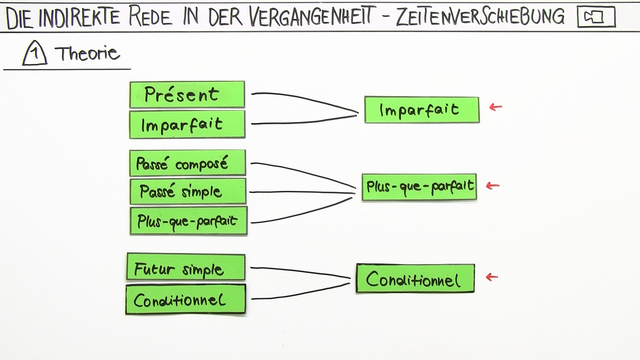 DIE INDIREKTE REDE IN DER VERGANGENHEIT - ZEITENVERSCHIEBUNG
1 Theorie
Présent
Imparfait
Imparfait
Passé composé
Passé simple
Plus-que-parfait
Plus-que-parfait
Futur simple
Conditionnel
Conditionnel